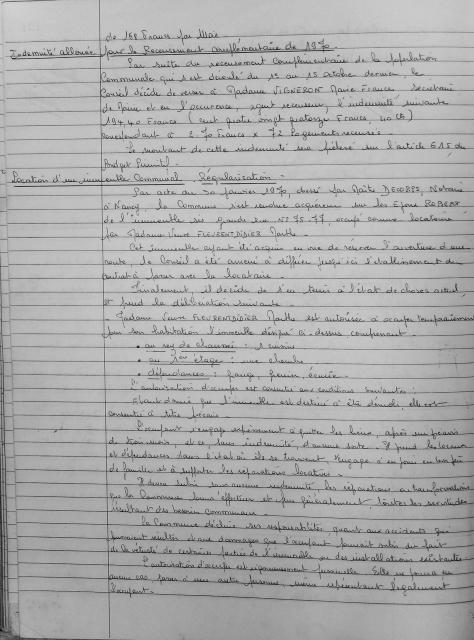 de 150 Francs par Mois
Indemnité allouée pour le Recensement complémentaire de 1970.
Par suite du recensement complémentaire de la population
Communale qui s'est déroulé du 1er au 15 octobre dernier, le
Conseil décide de verser à Madame VIGNERON Marie France, Secrétaire
de Mairie et en l'occurence, agent recenseur, l'indemnité suivante
194,40 Francs (cent quatre vingt quatorze Francs, 40 cts)
correspondant à 2,70 Francs x 72 logements recensés.
Le montant de cette indemnité sera prélevé sur l'article 615 du
Budget Primitif.
Location d'un immeuble Communal. Régularisation.
Par acte du 30 janvier 1970, dressé par Maître Notaire
à Nancy, la Commune s'est rendue acquéreur sur les Epoux ROBERT
de l'immeuble sis grande rue N° 75-77, occupé comme locataire
par Madame Veuve FLEURENTDIDIER Marthe.
Cet immeuble ayant été acquis en vue de réserver l'ouverture d'une
route, le Conseil a été amené à différer jusqu'ici l'établissement du
contrat à passer avec la locataire.
Finalement, il décide de s'en tenir à l'état de choses actuel,
et prend la délibération suivante.
Madame Veuve FLEURENTDIDIER Marthe est autorisée à occuper temporairement
pour son habitation l'immeuble désigné ci-dessus, comprenant
• au rez de chaussée : 1 cuisine
• au 1er étage : une chambre
• dépendances : grange, grenier, écurie
L'autorisation d'occuper est consentie aux conditions suivantes :
Etant donné que l'immeuble est destiné à être démoli, elle est
consentie à titre précaire.
L'occupant s'engage expressément à quitter les lieux, après un préavis
de trois mois, et ce, sans indemnité, d'aucune sorte. Il prend les locaux
et dépendances dans l'état où ils se trouvent, s'engage à en jouir en bon père
de famille et à supporter les réparations locatives.
Il devra subir sans aucune indemnité, les réparations ou transformations
que la Commune ferait effectuer et plus généralement, toutes les servitudes
résultant des besoins communaux.
La Commune décline ses responsabilités quant aux accidents qui
pourraient résulter et aux dommages que l'occupant pourrait subir du fait
de la vétusté de certaines parties de l'immeuble ou des installations existantes.
L'autorisation d'occuper est rigoureusement personnelle. Elle ne pourra en
aucun cas passer à une autre personne, même représentant légalement
l'occupant.